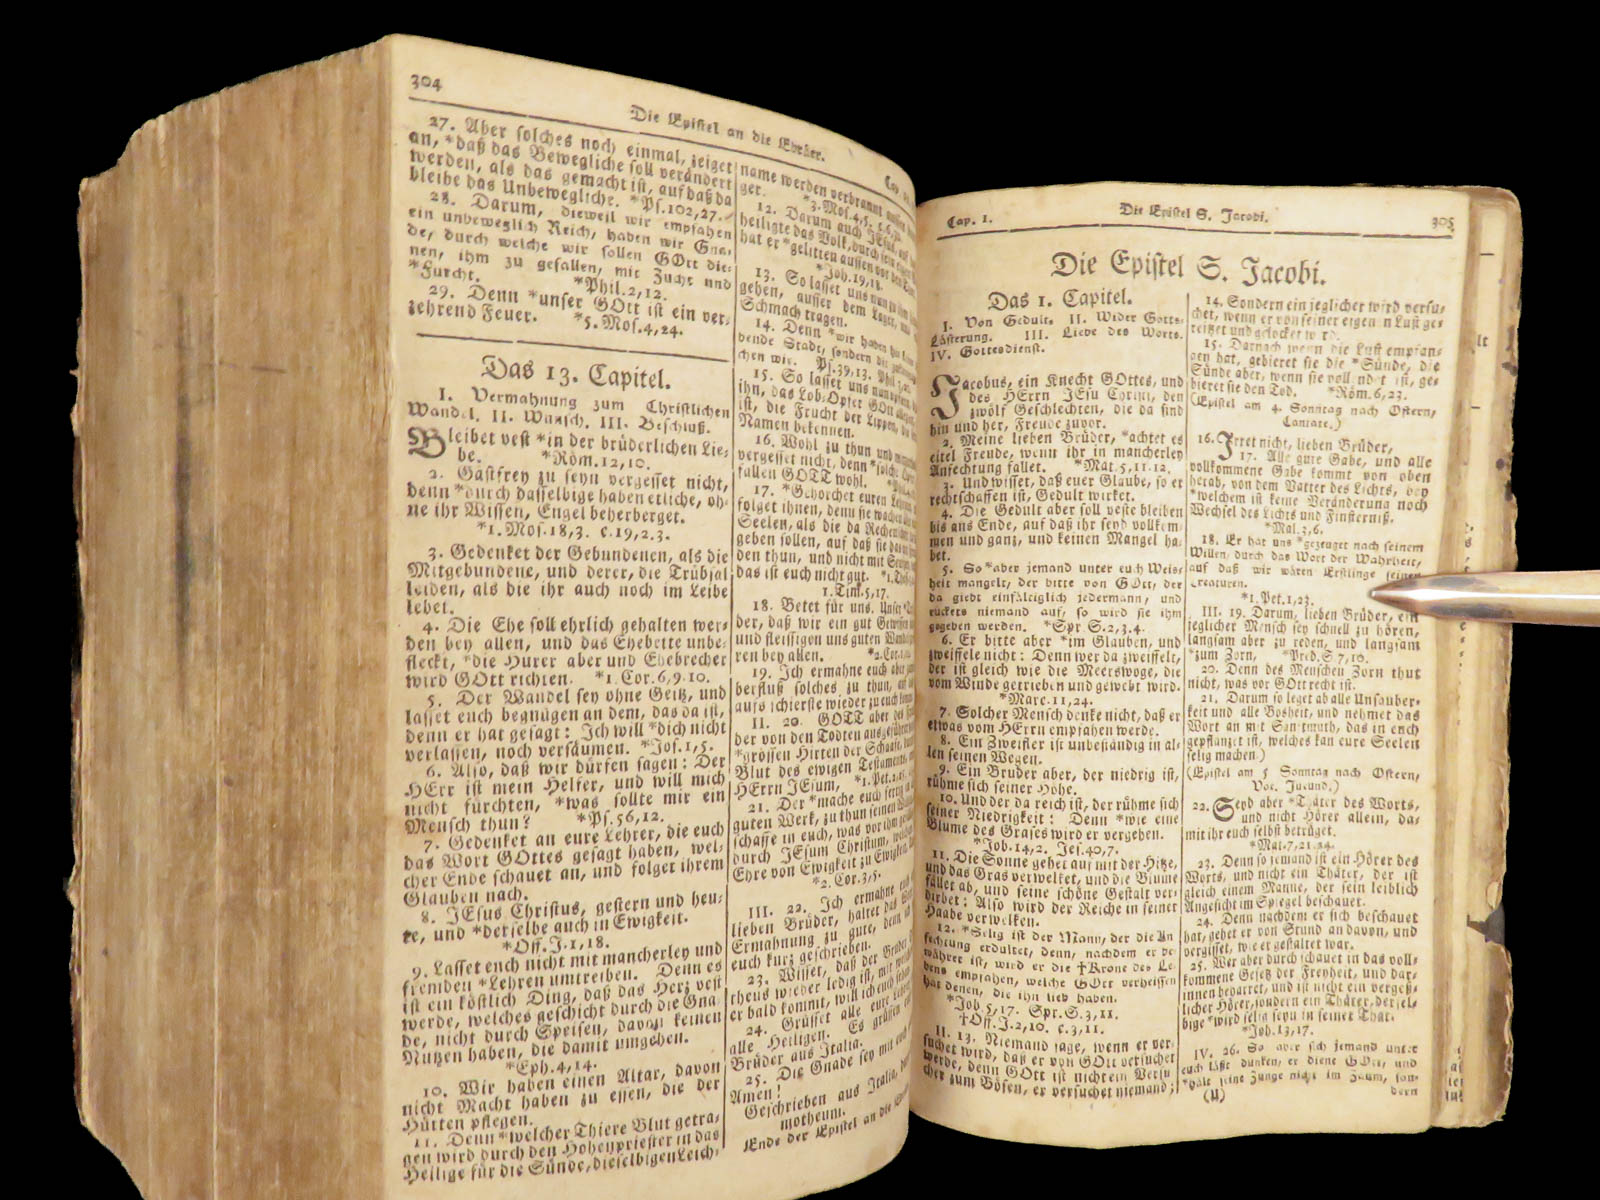 304
Die Epistel an die Ebräer.
27. Aber solches noch einmal, zeiget
an, *daß das Bewegliche soll verändert
werden, als das gemacht ist, auf daß da
bleibe das Unbewegliche. *Ps.102,27.
28. Darum, dieweil wir empfahen
ein unbeweglich Reich, haben wir Gna-
de, durch welche wir sollen GOtt die-
nen, ihm zu gefallen, mit Zucht und
*Furcht. *Phil.2,12.
29. Denn *unser GOtt ist ein ver-
zehrend Feuer. *5.Mos.4,24.
Das 13. Capitel.
I. Vermahnung zum Christlichen
Wandel. II. Wunsch. III. Beschluß.
Bleibet vest *in der brüderlichen Lie-
be. *Röm.12,10.
2. Gastfrey zu seyn vergesset nicht,
denn *durch dasselbige haben etliche, oh-
ne ihr Wissen, Engel beherberget.
*1.Mos.18,3. c.19,2.3.
3. Gedenket der Gebundenen, als die
Mitgebundene, und derer, die Trübsal
leiden, als die ihr auch noch im Leibe
lebet.
4. Die Ehe soll ehrlich gehalten wer-
den bey allen, und das Ehebette unbe-
fleckt, *die Hurer aber und Ehebrecher
wird GOtt richten. *1.Cor.6,9.10.
5. Der Wandel sey ohne Geitz, und
lasset euch begnügen an dem, das da ist,
denn er hat gesagt: Ich will *dich nicht
verlassen, noch versäumen. *Jos.1,5.
6. Also, daß wir dürfen sagen: Der
HErr ist mein Helfer, und will mich
nicht fürchten, *was sollte mir ein
Mensch thun? *Ps.56,12.
7. Gedenket an eure Lehrer, die euch
das Wort GOttes gesagt haben, wel-
cher Ende schauet an, und folget ihrem
Glauben nach.
8. JEsus Christus, gestern und heu-
te, und *derselbe auch in Ewigkeit.
*Off.J.1,18.
9. Lasset euch nicht mit mancherley und
fremden *Lehren umtreiben. Denn es
ist ein köstlich Ding, daß das Herz vest
werde, welches geschicht durch die Gna-
de, nicht durch Speisen, davon keinen
Nutzen haben, die damit umgehen.
*Eph.4,14.
10. Wir haben einen Altar, davon
nicht Macht haben zu essen, die der
Hütten pflegen.
11. Denn *welcher Thiere Blut getra-
gen wird durch den Hohenpriester in das
Heilige für die Sünde, dieselbigen Leich-
name werden verbrannt ausser
ger. *3.Mos.4,5.
12. Darum auch JEsus, auf
heiligte das Volk, durch sein
hat er *gelitten aussen vor
*Joh.19,
13. So lasset uns nun zu ihm
gehen, ausser dem Lager, und
Schmach tragen.
14. Denn *wir haben hie
bende Stadt, sondern die
chen wir. Ps.39,13.
15. So lasset uns nun opfern,
ihn, das Lob-Opfer GOtt
ist, die Frucht der Lippen, die
Namen bekennen.
16. Wohl zu thun und
vergesset nicht, denn *solche
fallen GOTT wohl.
17. *Gehorchet euren Lehrern,
folget ihnen, denn sie wachen
Seelen, als die da Rechenschaft
geben sollen, auf daß sie das
den thun, und nicht mit
das ist euch nicht gut.
1.Tim.5,17.
18. Betet für uns. Unser
der, daß wir ein gut Gewissen
und fleissigen uns guten Wandel
ren bey allen. *2.Cor.
19. Ich ermahne euch aber
berfluß solches zu thun, auf
aufs schierste wieder zu euch
II. 20. GOTT aber des
der von den Todten ausgeführet
*grossen Hirten der Schaafe,
Blut des ewigen Testaments,
HErrn JEsum, *1.Pet.2,
21. Der *mache euch fertig in
guten Werk, zu thun seinen Willen,
schaffe in euch, was vor ihm
durch JEsum Christum, welchem
Ehre von Ewigkeit zu Ewigkeit.
*2.Cor.3,5.
III. 22. Ich ermahne
lieben Brüder, haltet das
Ermahnung zu gute, denn
euch kurz geschrieben.
23. Wisset, daß der Bruder
theus wieder ledig ist, mit
er bald kommt, will ich euch sehen.
24. Grüsset alle eure Lehrer
alle Heiligen. Es grüssen
Brüder aus Italia.
25. Die Gnade sey mit euch
Amen!
Geschrieben aus Italia,
motheum.
Ende der Epistel an die
Cap. 1. Die Epistel S. Jacobi. 305
Die Epistel S. Jacobi.
Das 1. Capitel.
I. Von Gedult. II. Wider Gotts-
Lästerung. III. Liebe des Worts.
IV. Gottesdienst.
Jacobus, ein Knecht GOttes, und
des HErrn JEsu Christi, den
zwölf Geschlechten, die da sind
hin und her, Freude zuvor.
2. Meine lieben Brüder, *achtet es
eitel Freude, wenn ihr in mancherley
Anfechtung fallet. *Mat.5,11.12.
3. Und wisset, daß euer Glaube, so er
rechtschaffen ist, Gedult wirket.
4. Die Gedult aber soll veste bleiben
bis ans Ende, auf daß ihr seyd vollkom-
men und ganz, und keinen Mangel ha-
bet.
5. So *aber jemand unter euch Weis-
heit mangelt, der bitte von GOtt, der
da giebt einfältiglich jedermann, und
rückets niemand auf, so wird sie ihm
gegeben werden. *Spr.S.2,3.4.
6. Er bitte aber *im Glauben, und
zweiffele nicht: Denn wer da zweiffelt,
der ist gleich wie die Meerswoge, die
vom Winde getrieben und gewebt wird.
*Marc.11,24.
7. Solcher Mensch denke nicht, daß er
etwas vom HErrn empfahen werde.
8. Ein Zweifler ist unbeständig in al-
len seinen Wegen.
9. Ein Bruder aber, der niedrig ist,
rühme sich seiner Höhe.
10. Und der da reich ist, der rühme sich
seiner Niedrigkeit: Denn *wie eine
Blume des Grases wird er vergehen.
*Job.14,2. Jes.40,7.
11. Die Sonne gehet auf mit der Hitze,
und das Gras verwelket, und die Blume
fället ab, und seine schöne Gestalt ver-
dirbet: Also wird der Reiche in seiner
Haabe verwelken.
12. *Selig ist der Mann, der die An-
fechtung erdultet, denn, nachdem er be-
währet ist, wird er die †Krone des Le-
bens empfahen, welche GOtt verheissen
hat denen, die ihn lieb haben.
*Job.5,17. Spr.S.3,11.
†Off.J.2,10. c.3,11.
II. 13. Niemand sage, wenn er ver-
suchet wird, daß er von GOtt versuchet
werde, denn GOtt ist nicht ein Versu-
cher zum Bösen, er versuchet niemand;
14. Sondern ein jeglicher wird versu-
chet, wenn er von seiner eigenen Lust ge-
reitzet und gelocket wird.
15. Darnach wenn die Lust empfan-
gen hat, gebieret sie die *Sünde, die
Sünde aber, wenn sie vollendet ist, ge-
bieret sie den Tod. *Röm.6,23.
(Epistel am 4. Sonntag nach Ostern,
Cantate.)
16. Irret nicht, lieben Brüder,
17. Alle gute Gabe, und alle
vollkommene Gabe kommt von oben
herab, von dem Vatter des Lichts, bey
*welchem ist keine Veränderung noch
Wechsel des Lichts und Finsterniß.
*Mal.3,6.
18. Er hat uns *gezeuget nach seinem
Willen, durch das Wort der Wahrheit,
auf daß wir wären Erstlinge seiner
Creaturen.
*1.Pet.1,23.
III. 19. Darum, lieben Brüder, ein
jeglicher Mensch sey schnell zu hören,
langsam aber zu reden, und langsam
*zum Zorn. *Pred.S.7,10.
20. Denn des Menschen Zorn thut
nicht, was vor GOtt recht ist.
21. Darum so leget ab alle Unsauber-
keit und alle Bosheit, und nehmet das
Wort an mit Sanftmuth, das in euch
gepflanzet ist, welches kan eure Seelen
selig machen.)
(Epistel am 5 Sonntag nach Ostern,
Voc. Jucund.)
22. Seyd aber *Thäter des Worts,
und nicht Hörer allein, da-
mit ihr euch selbst betrüget.
*Mat.7,21.24.
23. Denn so jemand ist ein Hörer des
Worts, und nicht ein Thäter, der ist
gleich einem Manne, der sein leiblich
Angesicht im Spiegel beschauet.
24. Denn nachdem er sich beschauet
hat, gehet er von Stund an davon, und
vergisset, wie er gestaltet war.
25. Wer aber durchschauet in das voll-
kommene Gesetz der Freyheit, und dar-
innen beharret, und ist nicht ein vergeß-
licher Hörer, sondern ein Thäter, dersel-
bige *wird selig seyn in seiner That.
*Joh.13,17.
IV. 26. So aber sich jemand unter
euch läßt dunken, er diene GOtt, und
*hält seine Zunge nicht im Zaum, son-
(U) dern